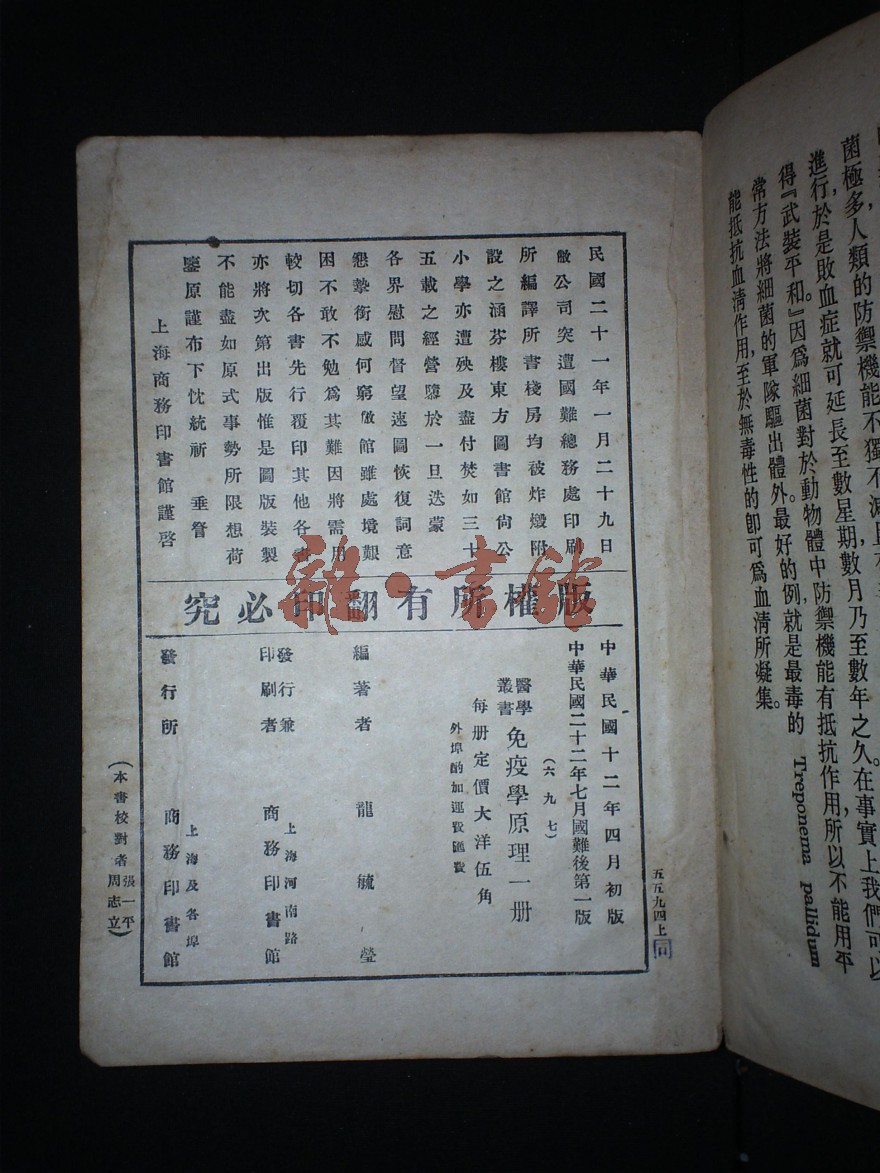 菌極多人類的防禦機能不獨不減
進行，於是敗血症就可延長至數星期，數月乃至數年之久。在事實上我們可以
得『武裝平和。』因爲細菌對於動物體中防禦機能有抵抗作用，所以不能用平
常方法將細菌的軍隊驅出體外。最好的例，就是最毒的 Treponema pallidum
能抵抗血清作用，至於無毒性的卽可爲血清所凝集。
民國二十一年一月二十九日
敝公司突遭國難總務處印刷
所編譯所書棧房均被炸燬附
設之涵芬樓東方圖書館尙公
小學亦遭殃及盡付焚如三十
五載之經營隳於一旦迭蒙
各界慰問督望速圖恢復詞意
懇摯銜感何窮敝館雖處境艱
困不敢不勉爲其難因將需用
較切各書先行覆印其他各書
亦將次第出版惟是圖版裝製
不能盡如原式事勢所限想荷
鑒原謹布下忱統祈 垂詧
上海商務印書館謹啓
版權所有翻印必究
五五九四上
同
中華民國十二年四月初版
中華民國二十二年七月國難後第一版
(六九七)
醫學叢書 免疫學原理一册
每册定價大洋伍角
外埠酌加運費匯費
編著者 龍毓瑩
發行兼印刷者 上海河南路 商務印書館
發行所 上海及各埠 商務印書館
(本書校對者 張一平 周志立)
雜·書館